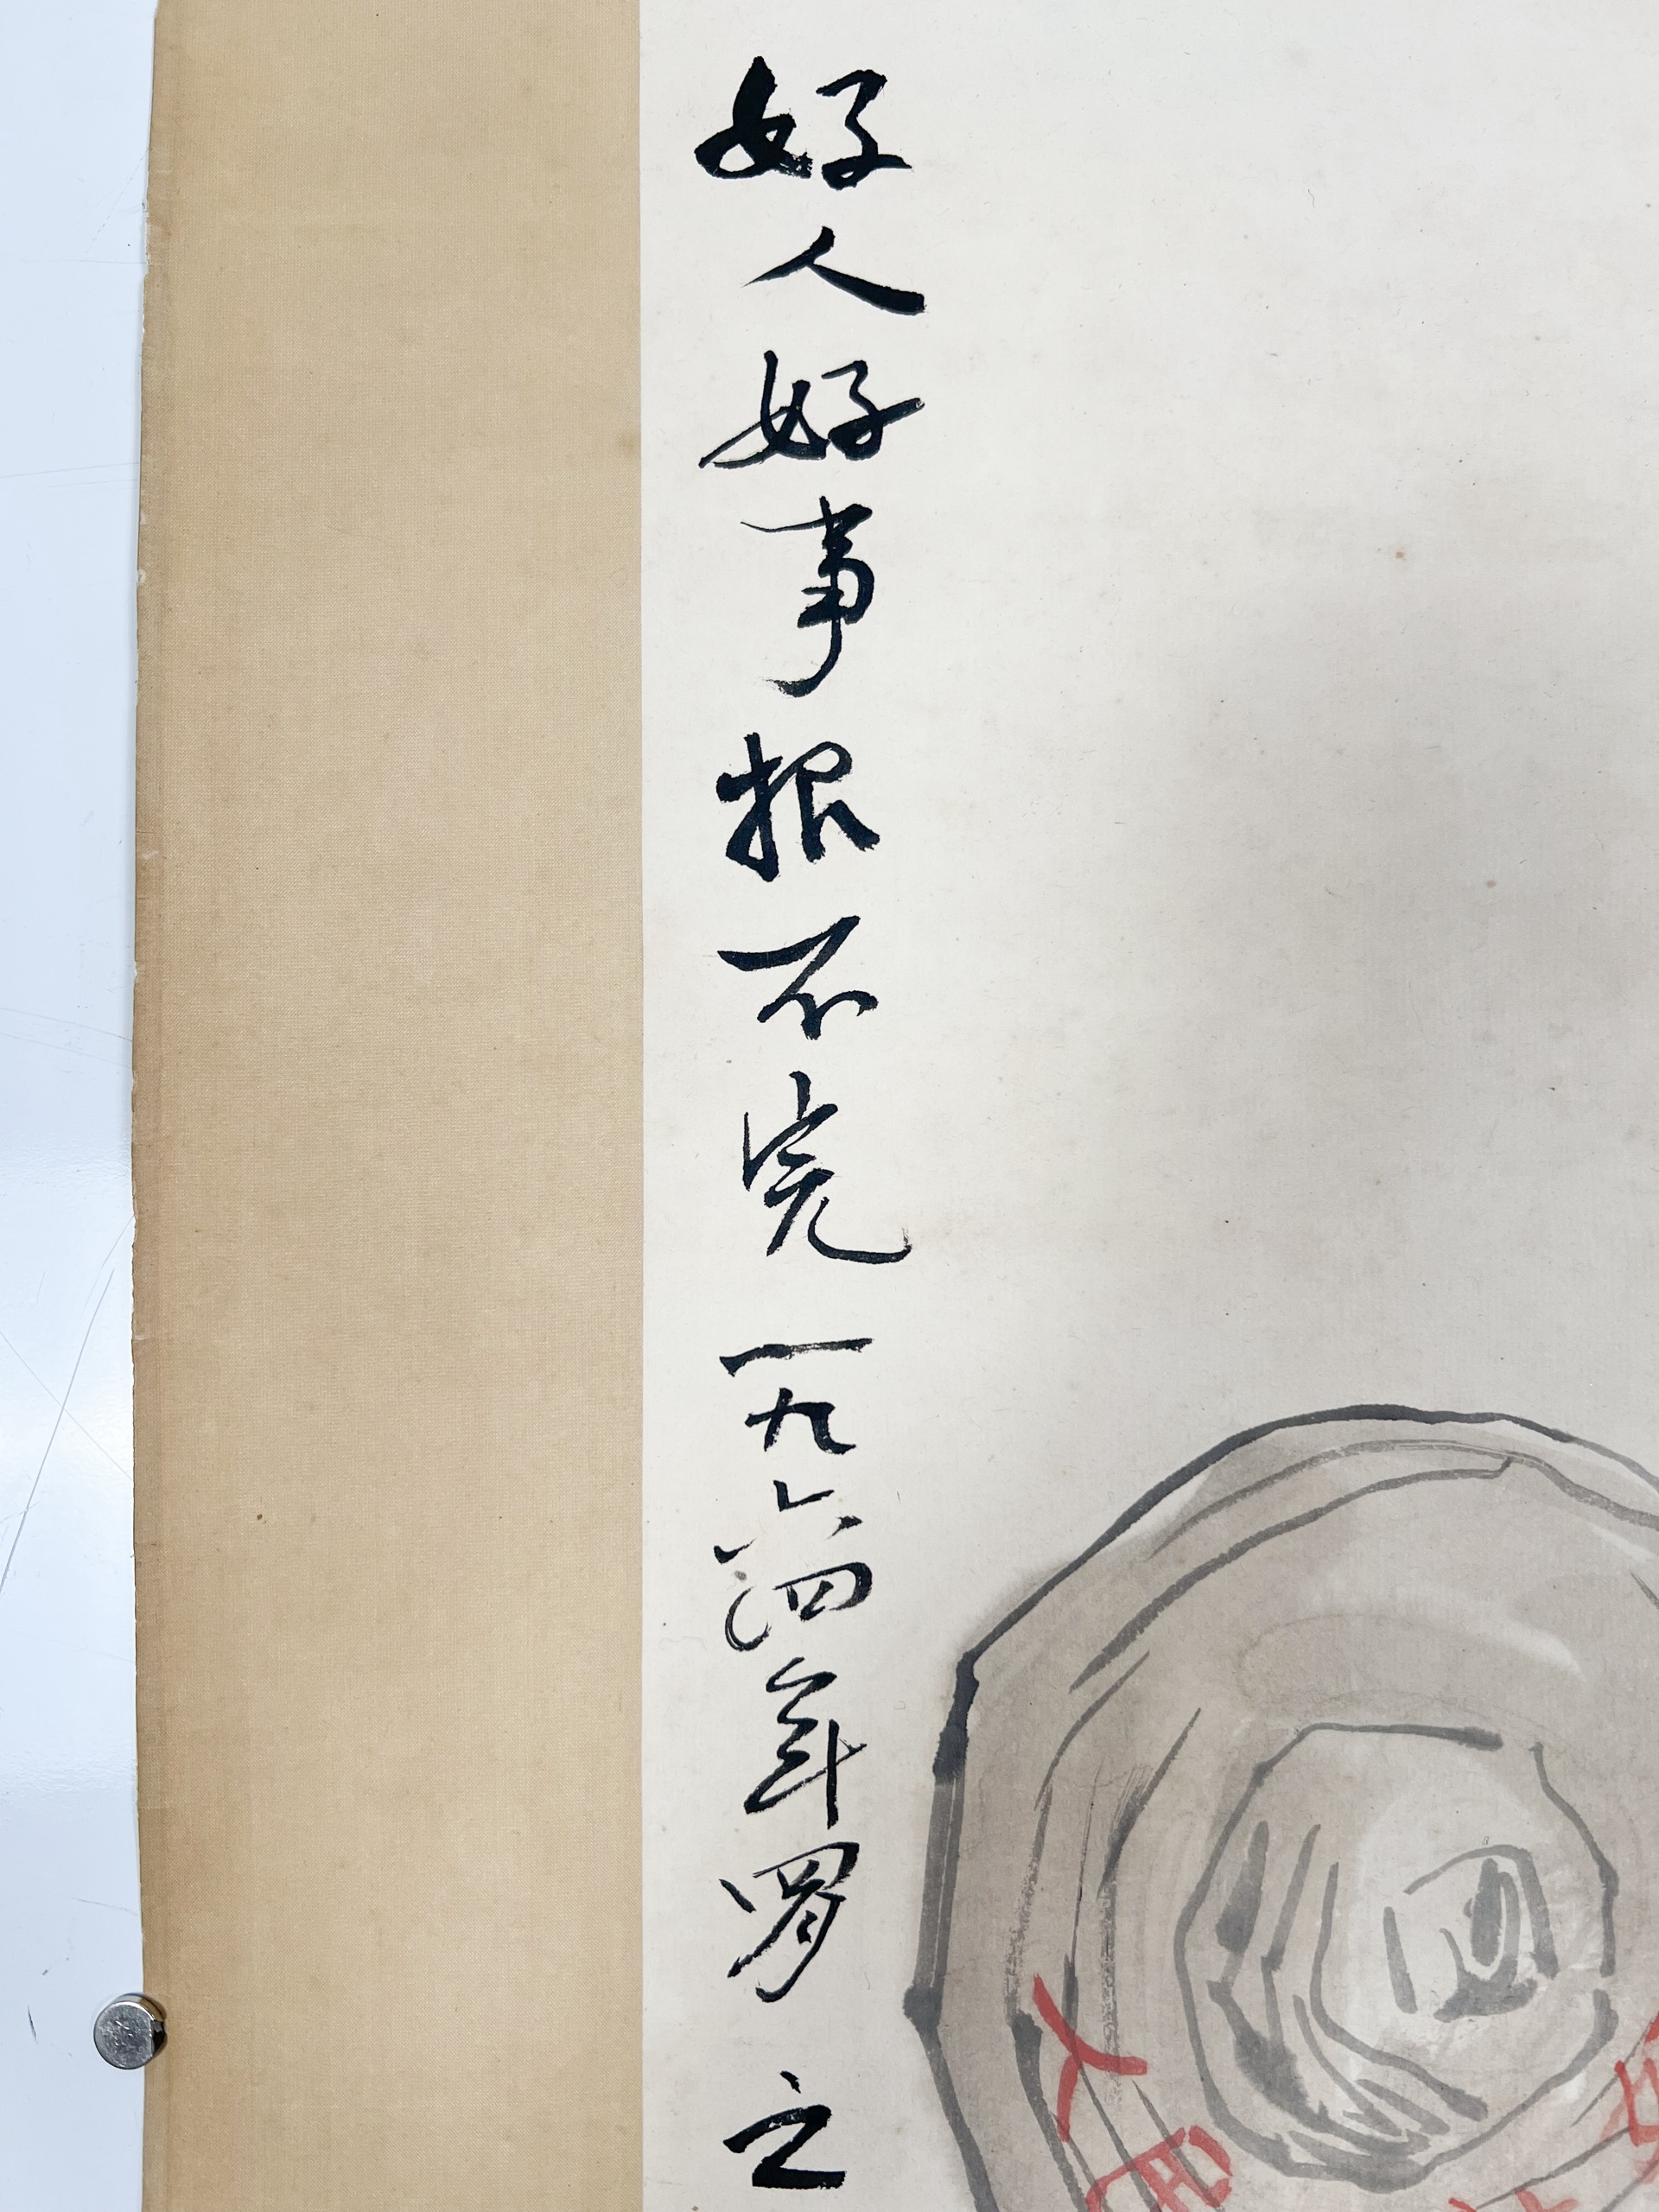 好人好事报不完一九六四年 之
人